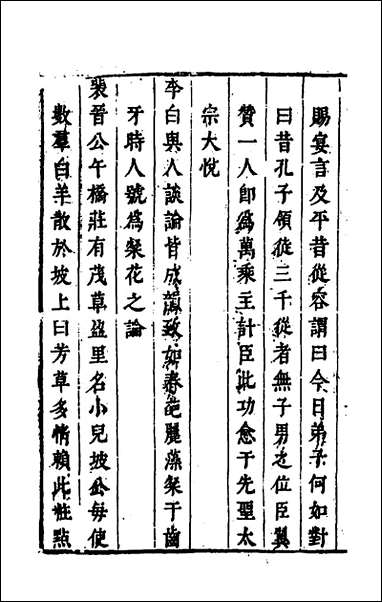 賜宴言及平昔從容謂曰今日弟子何如對
曰昔孔子領徒三千從者無子男之位臣翼
贊一人即為萬乘主計臣此功愈于先聖太
宗大悅
李白與人談論皆成韻致如春葩麗藻粲于齒
牙時人號為粲花之論
裴晉公午橋莊有茂草盈里名小兒坡公每使
數羣白羊散於坡上曰芳草多情賴此粧點